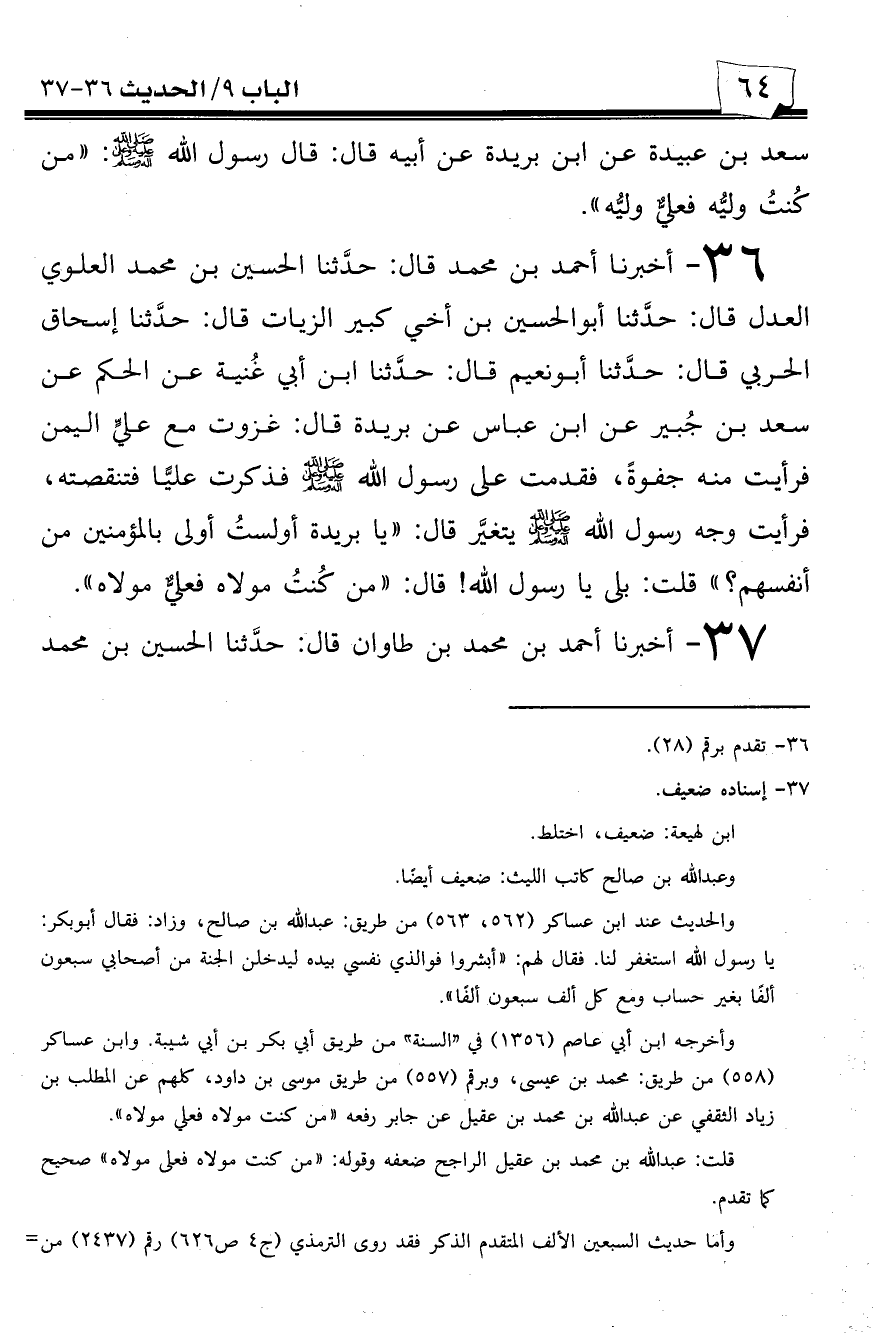 ٦٤
الباب ٩/ الحديث ٣٦-٣٧
سعد بن عبيدة عن ابن بريدة عن أبيه قال: قال رسول الله ﷺ: «من
كُنتُ وليُّه فعليٌّ وليُّه».
٣٦- أخبرنا أحمد بن محمد قال: حدَّثنا الحسين بن محمد العلوي
العدل قال: حدَّثنا أبوالحسين بن أخي كبير الزيات قال: حدَّثنا إسحاق
الحربي قال: حدَّثنا أبونعيم قال: حدَّثنا ابن أبي غُنية عن الحكم عن
سعد بن جُبير عن ابن عباس عن بريدة قال: غزوت مع عليٍّ اليمن
فرأيت منه جفوةً، فقدمت على رسول الله ﷺ فذكرت عليًّا فتنقصته،
فرأيت وجه رسول الله ﷺ يتغيَّر قال: «يا بريدة أولستُ أولى بالمؤمنين من
أنفسهم؟» قلت: بلى يا رسول الله! قال: «من كُنتُ مولاه فعليٌّ مولاه».
٣٧- أخبرنا أحمد بن محمد بن طاوان قال: حدَّثنا الحسين بن محمد
٣٦- تقدم برقم (٢٨).
٣٧- إسناده ضعيف.
ابن لهيعة: ضعيف، اختلط.
وعبدالله بن صالح كاتب الليث: ضعيف أيضًا.
والحديث عند ابن عساكر (٥٦٢، ٥٦٣) من طريق: عبدالله بن صالح، وزاد: فقال أبوبكر:
يا رسول الله استغفر لنا. فقال لهم: «أبشروا فوالذي نفسي بيده ليدخلن الجنة من أصحابي سبعون
ألفًا بغير حساب ومع كل ألف سبعون ألفًا».
وأخرجه ابن أبي عاصم (١٣٥٦) في «السنة» من طريق أبي بكر بن أبي شيبة. وابن عساكر
(٥٥٨) من طريق: محمد بن عيسى، وبرقم (٥٥٧) من طريق موسى بن داود، كلهم عن المطلب بن
زياد الثقفي عن عبدالله بن محمد بن عقيل عن جابر رفعه «من كنت مولاه فعلي مولاه».
قلت: عبدالله بن محمد بن عقيل الراجح ضعفه وقوله: «من كنت مولاه فعلى مولاه» صحيح
كما تقدم.
وأما حديث السبعين الألف المتقدم الذكر فقد روى الترمذي (ج٤ ص٦٢٦) رقم (٢٤٣٧) من=